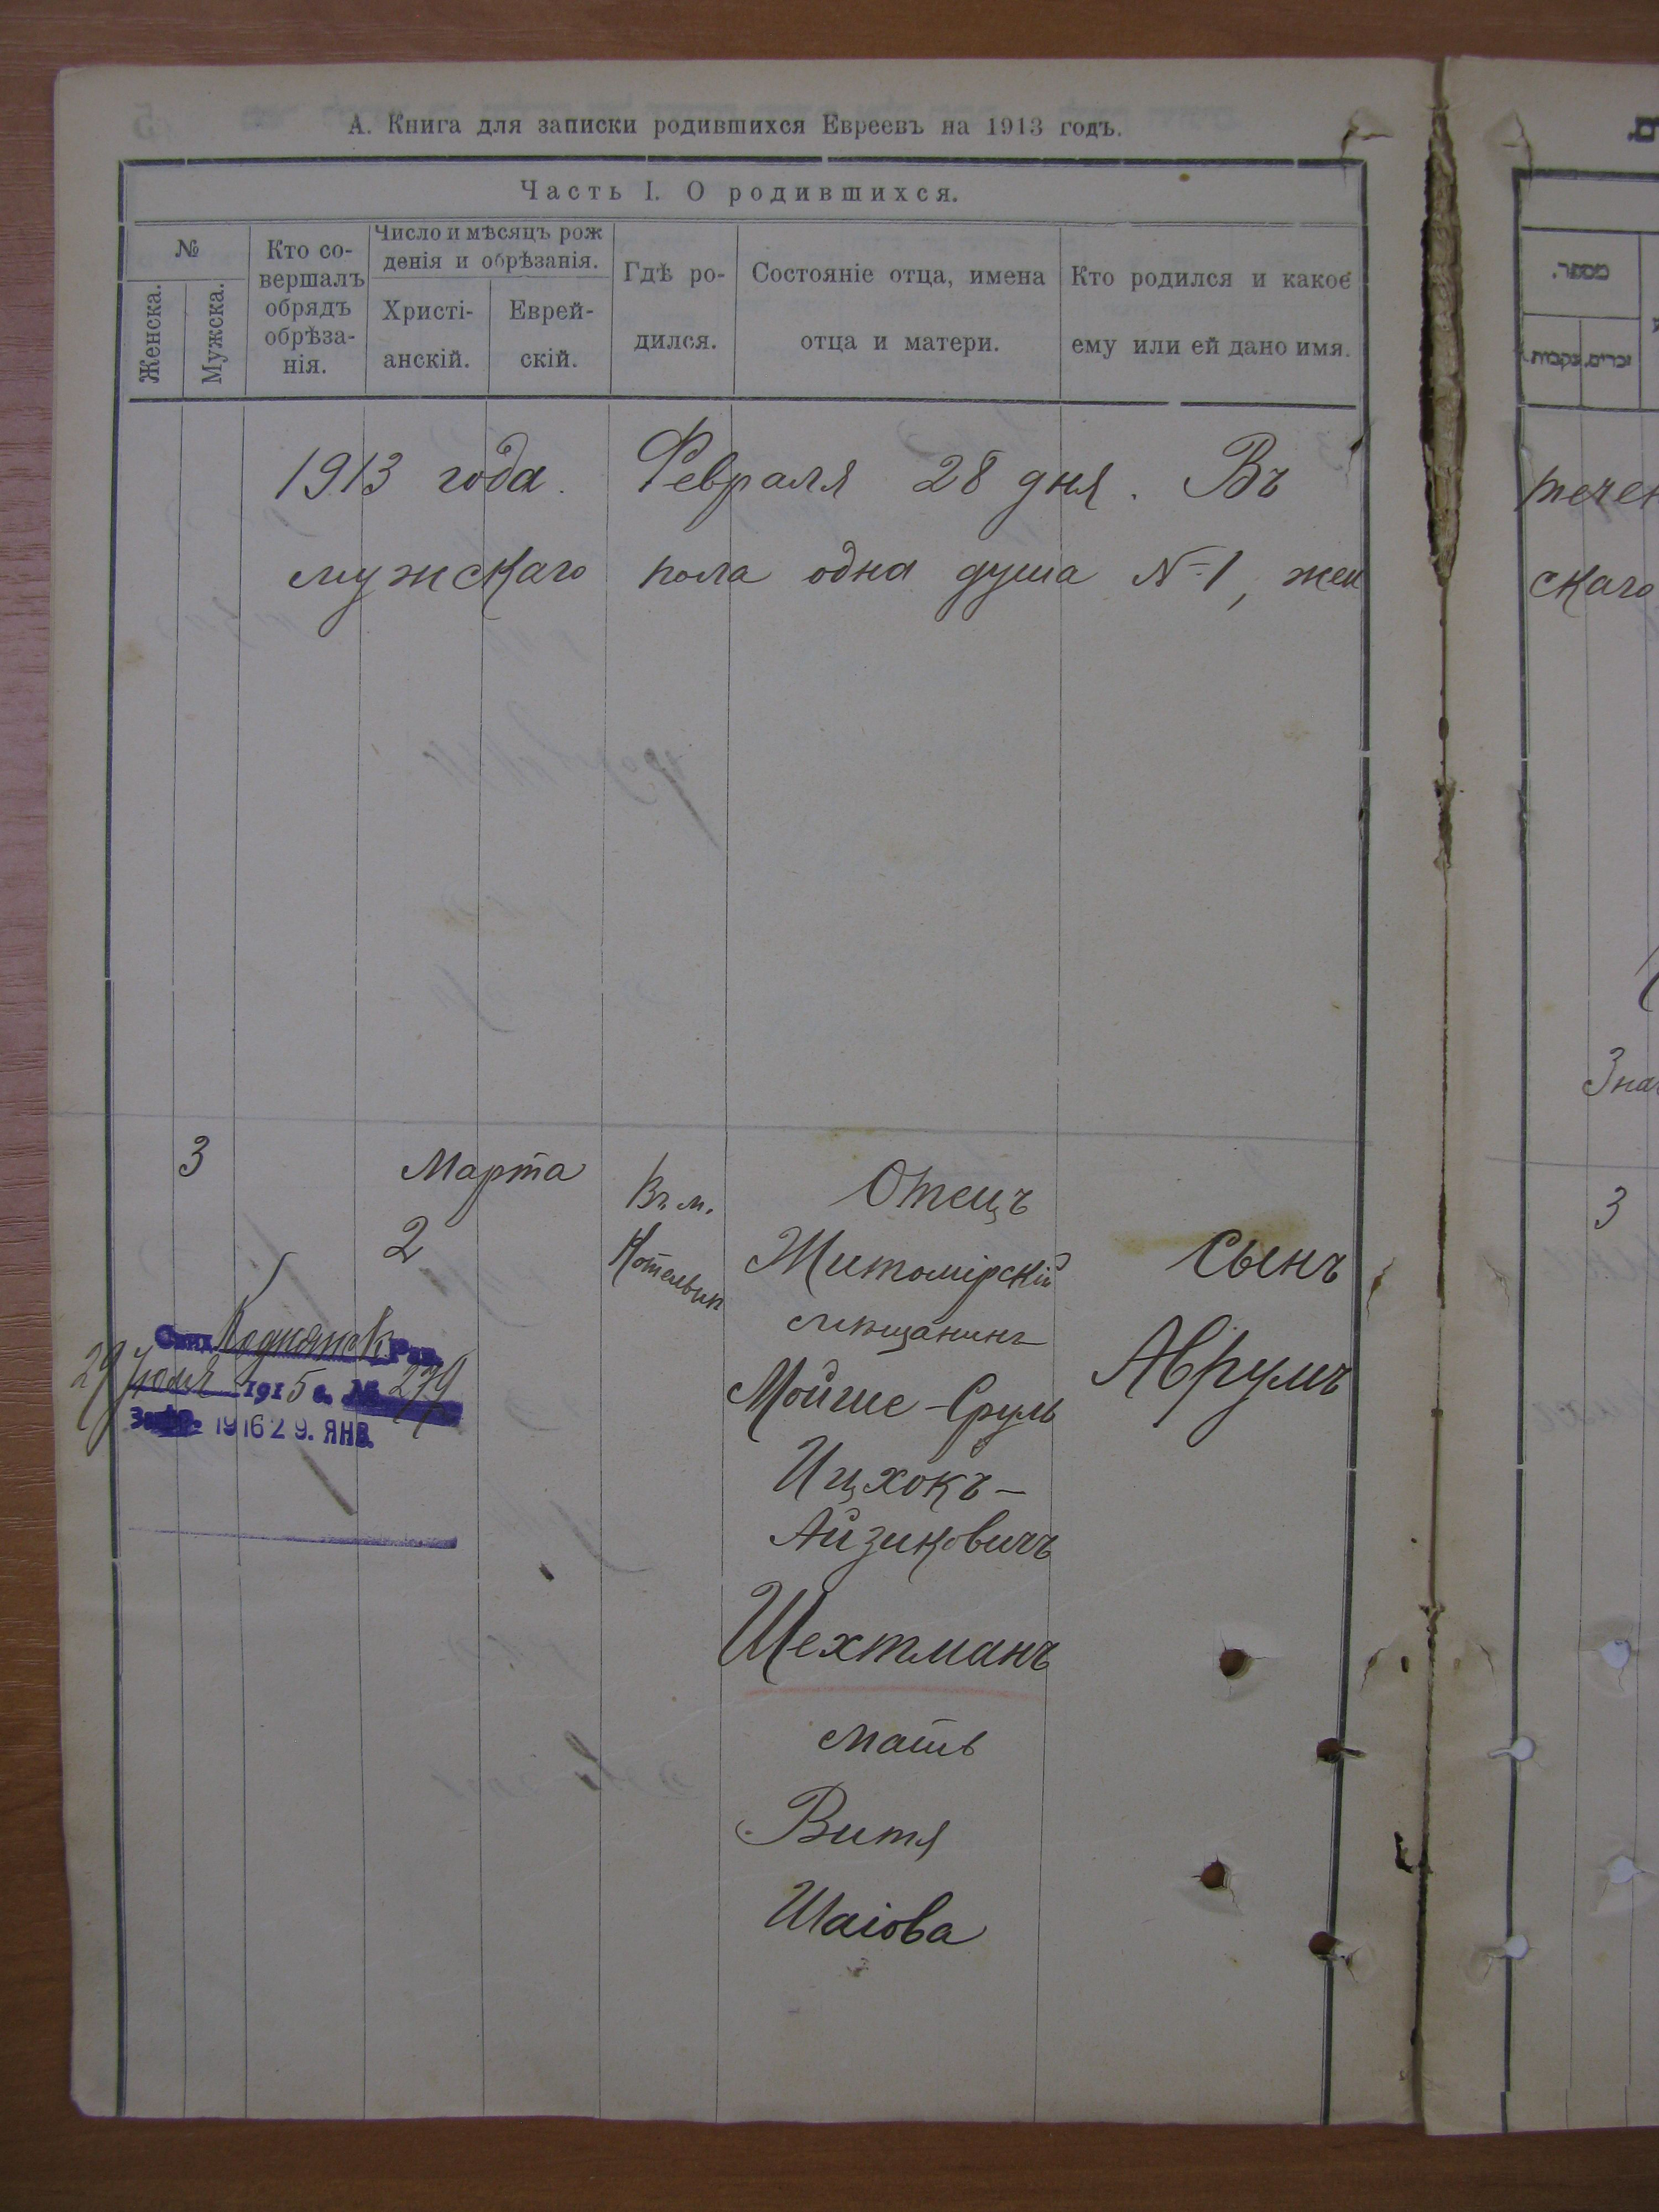 А. Книга для записки родившихся Евреевъ на 1913 годъ.
Часть I. О родившихся.
№
Женска.
Мужска.
Кто со-
вершалъ
обрядъ
обрѣза-
нія.
Число и мѣсяцъ рож
денія и обрѣзанія.
Христі-
анскій.
Еврей-
скій.
Гдѣ ро-
дился.
Состояніе отца, имена
отца и матери.
Кто родился и какое
ему или ей дано имя.
1913 года. Февраля 28 дня. Въ
мужскаго пола одна душа №1, жен
3
Марта
2
Въ м.
Отецъ
Житомірскій
мѣщанинъ
Мойше-Сруль
Ицхокъ-
Айзиковичъ
Шехтманъ
мать
Витя
Шаіова
сынъ
Аврумъ
29 Іюля 1915 г. № 279
1916 29. ЯНВ.
מספר.
זכרים.
נקבות
течен
скаго
Знач
3